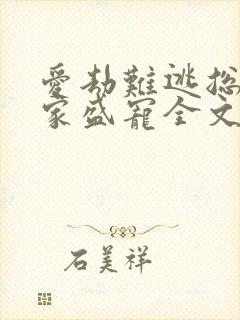 愛劫難逃总
家盛寵全文
石美祥